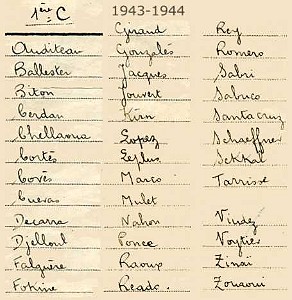 1ère C
1943-1944
Auditeau
Ballester
Biton
Cerdan
Chellaoua
Cortès
Covès
Cuevas
Decarra
Djelloul
Falguère
Fokine
Giraud
Gonzalès
Jacques
Jouvert
Kirn
Lopez
Leplus
Marco
Mulet
Nahon
Ponce
Raoux
Reado.
Rey
Romero
Sabri
Sabuco
Santacruz
Schaeffner
Sekkal
Tarrisse
Vindez
Voytier
Zinaï
Zouaoui